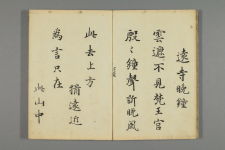 遠寺晩鐘
雲遮不見梵王宮
殷々鐘聲訴晩風
此去上方
猶遠近
為言只在
此山中